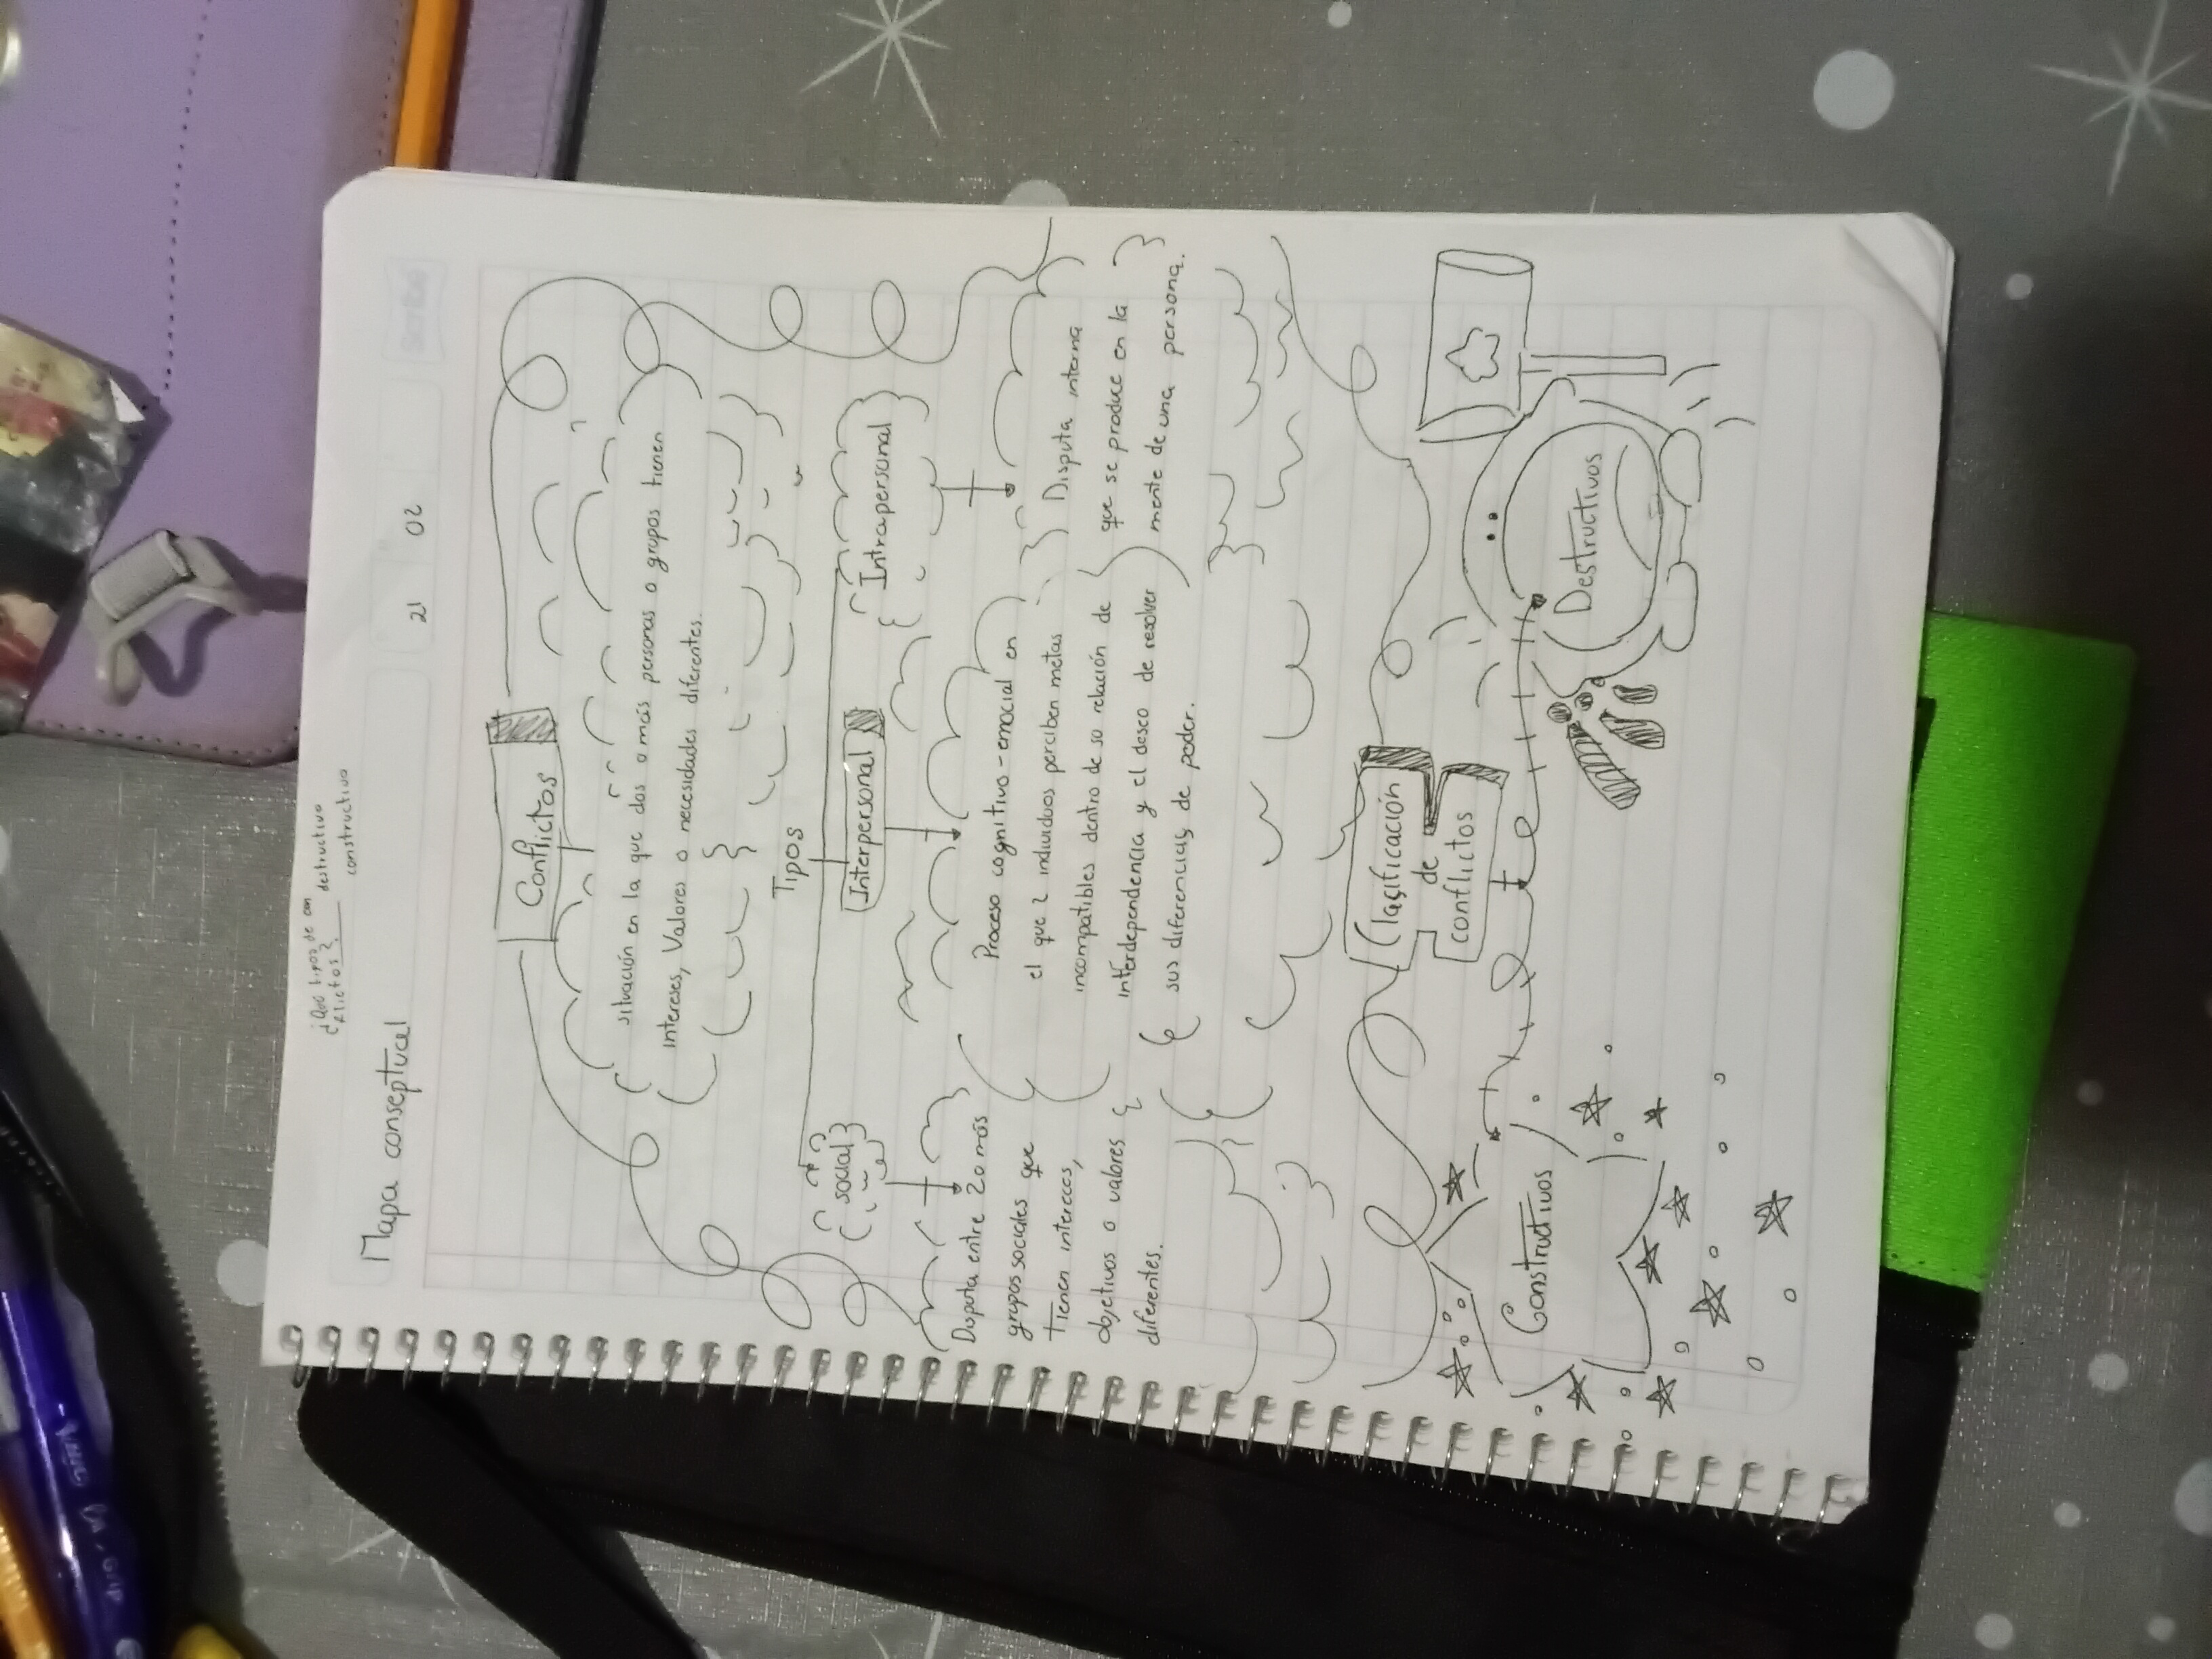 ¿Qué tipos de con
flictos? destructivo
constructivo
Mapa conseptual
21 02
Scribe
Conflictos
situación en la que dos o más personas o grupos tienen
intereses, Valores o necesidades diferentes.
Tipos
social
Interpersonal
Intrapersonal
Disputa entre 2 o más
grupos sociales que
tienen intereces,
objetivos o valores
diferentes.
Proceso cognitivo-emocial en
el que 2 individuos perciben metas
incompatibles dentro de su relación de
interdependencia y el deseo de resolver
sus diferencias de poder.
Disputa interna
que se produce en la
mente de una persona.
Clasificación
de
conflictos
Constructivos
Destructivos